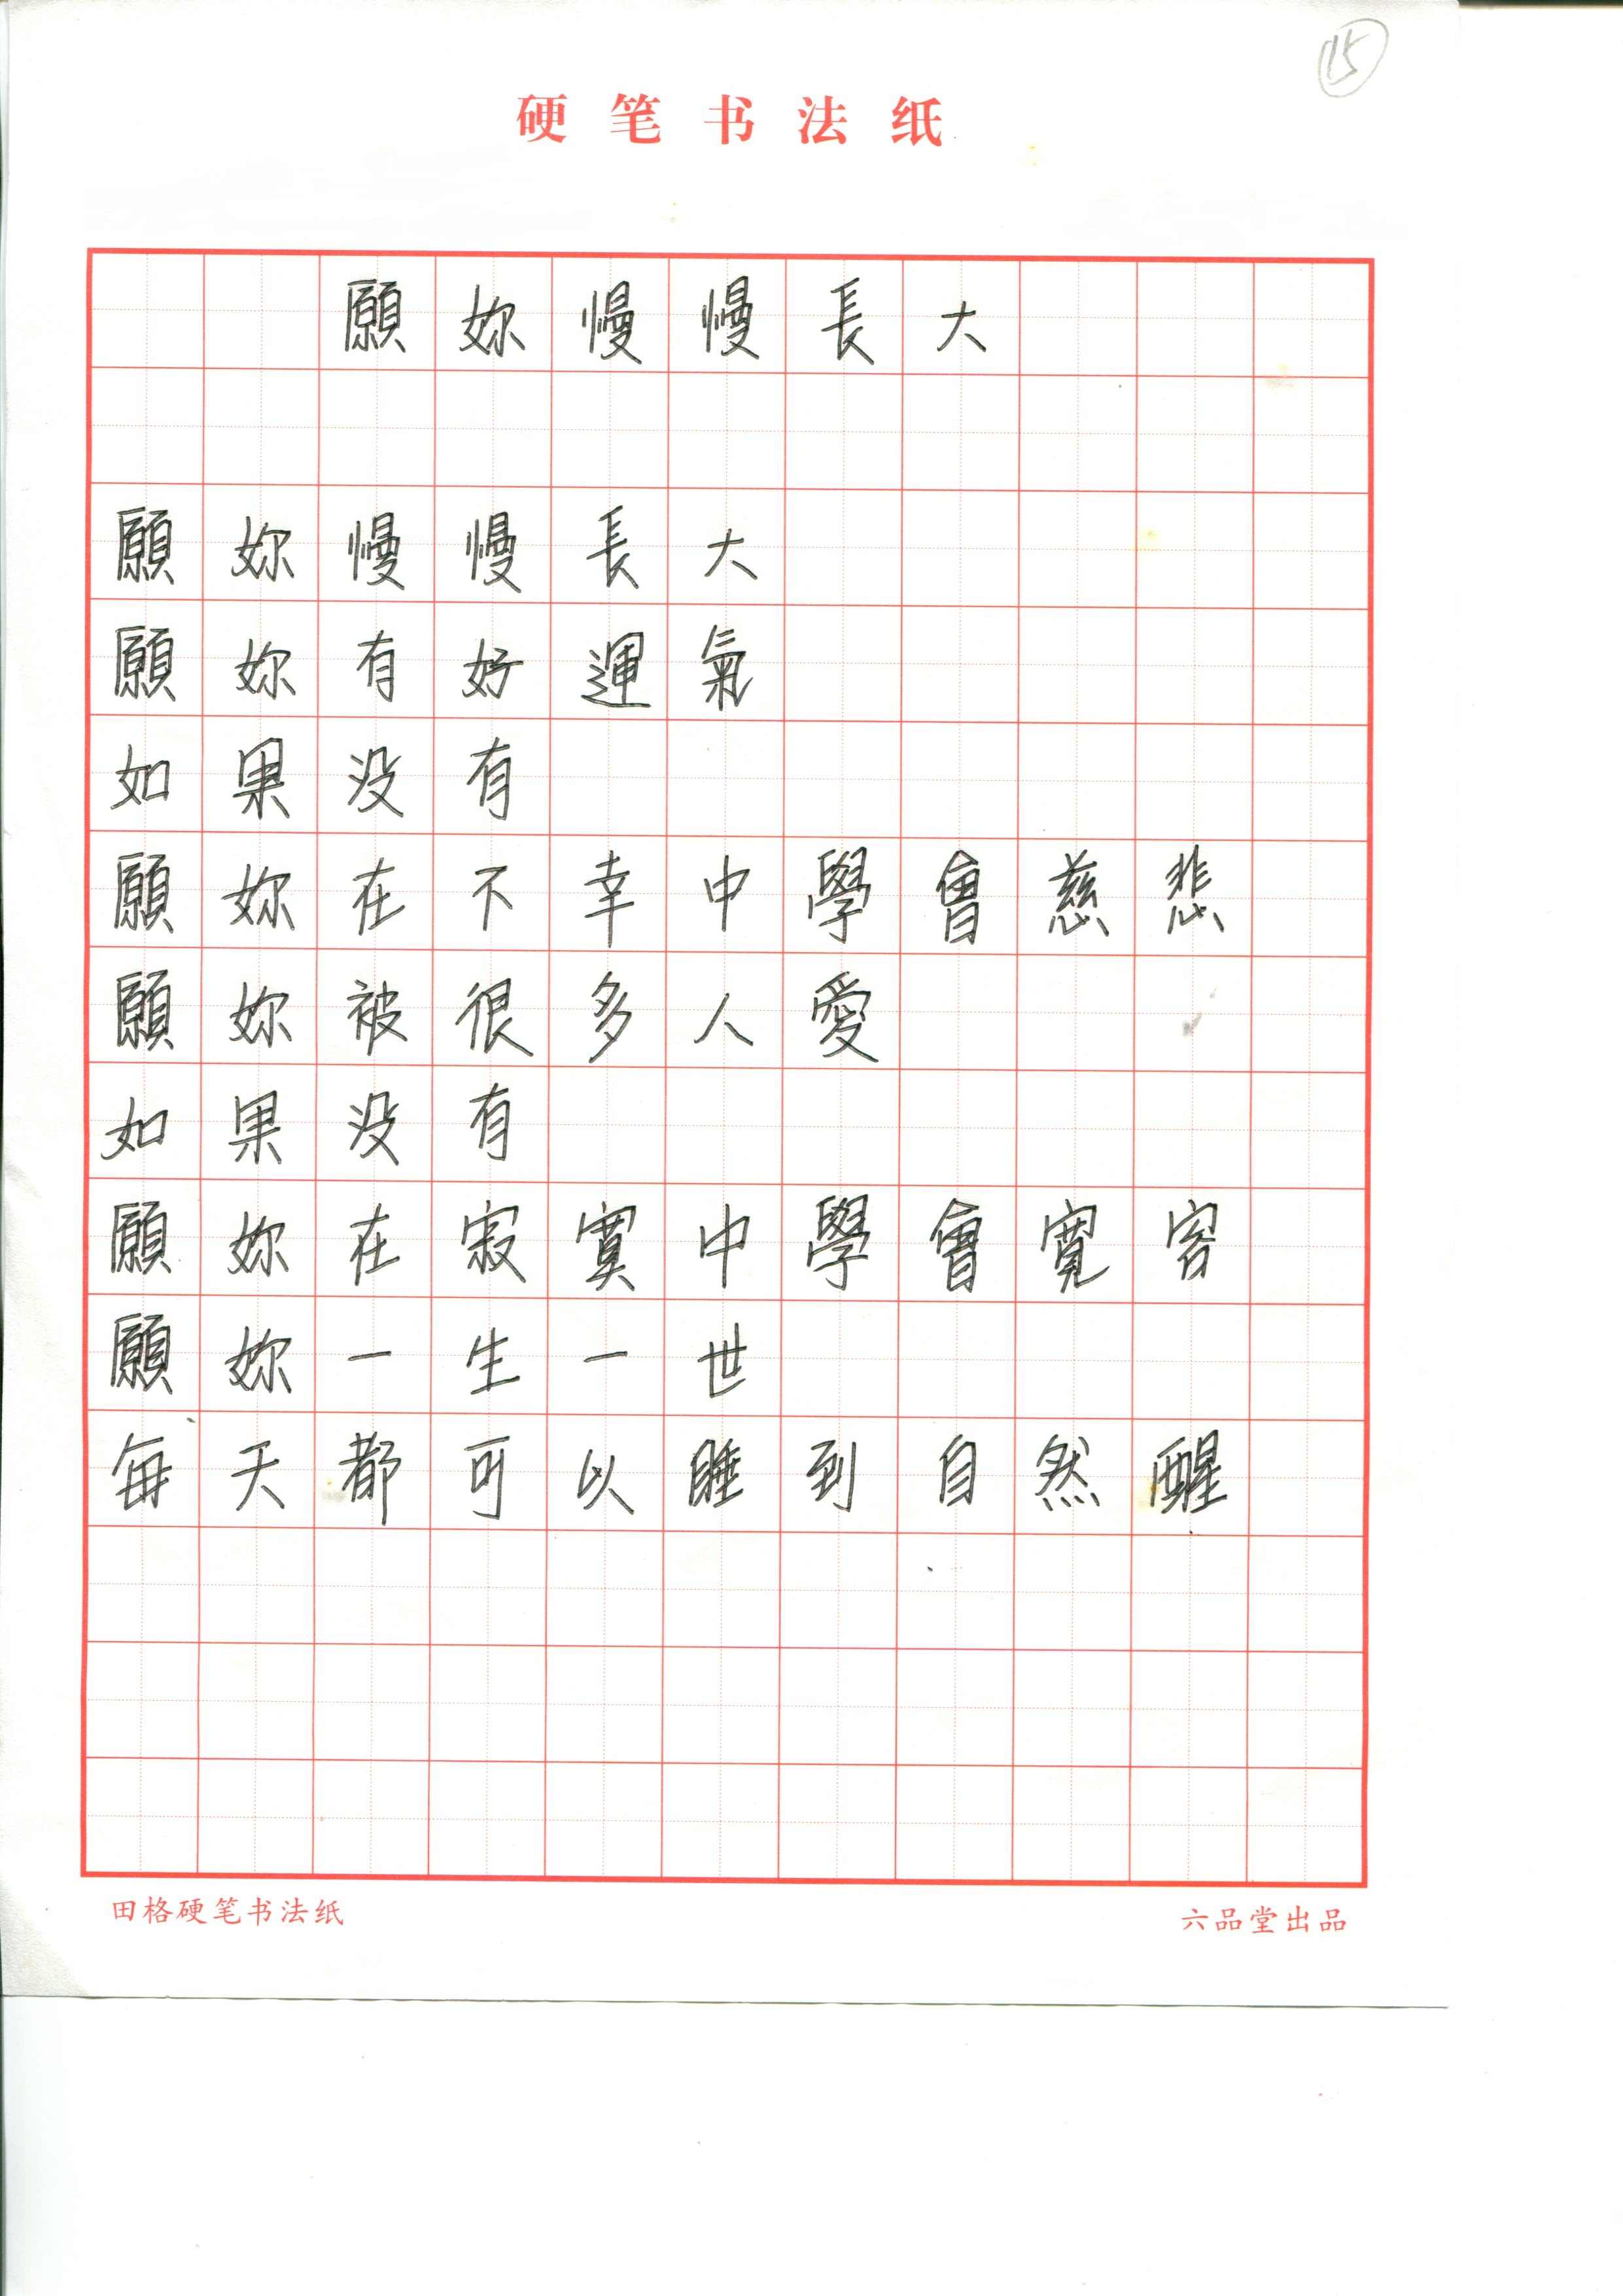 15
硬笔书法纸
願妳慢慢長大
願妳慢慢長大
願妳有好運氣
如果没有
願妳在不幸中學會慈悲
願妳被很多人愛
如果没有
願妳在寂寞中學會寬容
願妳一生一世
每天都可以睡到自然醒
田格硬笔书法纸
六品堂出品